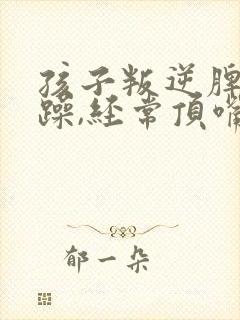 孩子叛逆脾
躁,経常頂嘴
郁一朵